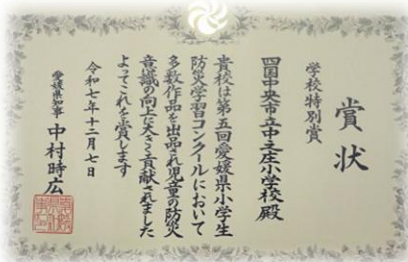 賞状
学校特別賞
四国中央市立中之庄小学校殿
貴校は第五回愛媛県小学生
防災学習コンクールにおいて
多数作品を出品され児童の防災
意識の向上に大きく貢献されました
よってこれを賞します
令和七年十二月七日
愛媛県知事 中村時広